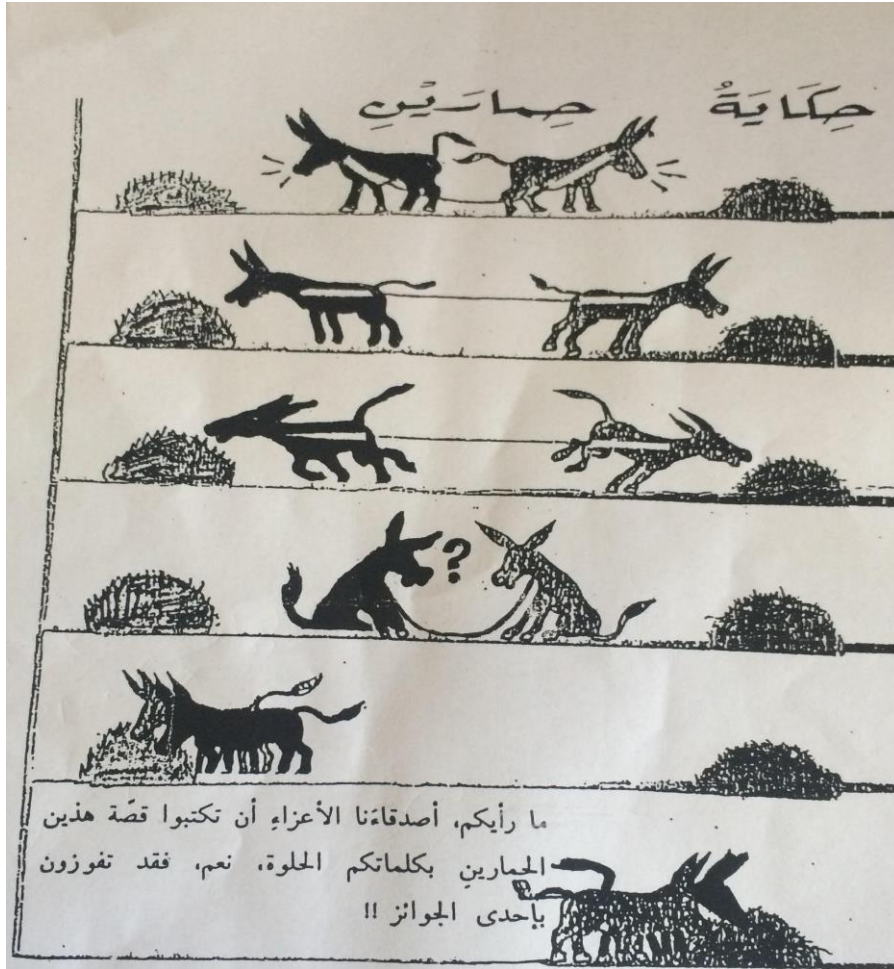 حِكَايَةُ حِمارَيْنِ
?
ما رأيكم، أصدقاءَنا الأعزاءِ أن تكتبوا قصّة هذين
الحمارينِ بكلماتكم الحلوة، نعم، فقد تفوزون
بإحدى الجوائز !!